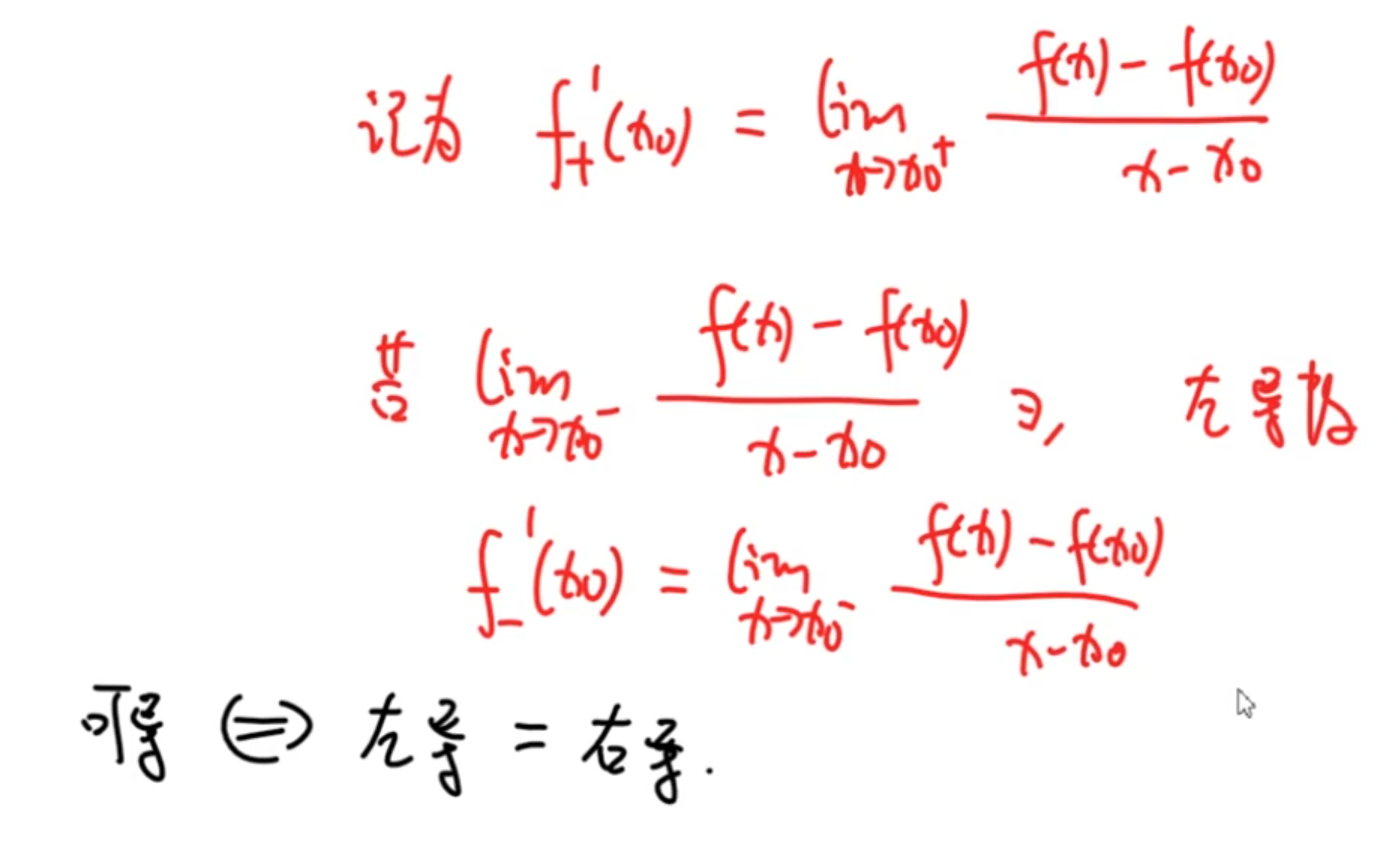 记为 f₊'(x₀) = lim x→x₀⁺ (f(x) - f(x₀))/(x - x₀)
若 lim x→x₀⁻ (f(x) - f(x₀))/(x - x₀) ∃, 左导数
f₋'(x₀) = lim x→x₀⁻ (f(x) - f(x₀))/(x - x₀)
可导 ⇔ 左导 = 右导.